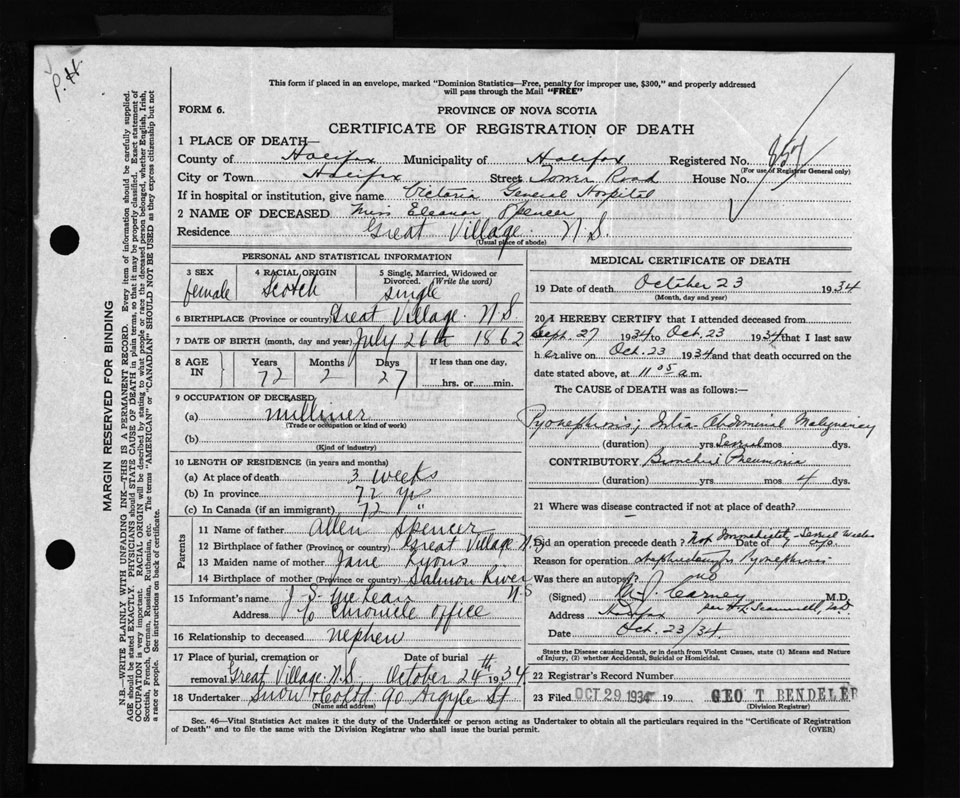 P.H.
This form if placed in an envelope, marked "Dominion Statistics—Free, penalty for improper use, $300," and properly addressed
will pass through the Mail "FREE"
FORM 6.
PROVINCE OF NOVA SCOTIA
CERTIFICATE OF REGISTRATION OF DEATH
1 PLACE OF DEATH—
County of Halifax Municipality of Halifax Registered No. 857
(For use of Registrar General only)
City or Town Halifax Street Tower Road House No.
If in hospital or institution, give name Victoria General Hospital
2 NAME OF DECEASED Miss Eleanor Spencer
Residence Great Village N.S.
(Usual place of abode)
PERSONAL AND STATISTICAL INFORMATION
3 SEX female
4 RACIAL ORIGIN Scotch
5 Single, Married, Widowed or Divorced. (Write the word) single
6 BIRTHPLACE (Province or country) Great Village N.S
7 DATE OF BIRTH (month, day and year) July 26th 1862
8 AGE IN Years 72 Months 2 Days 27 If less than one day, hrs. or min.
9 OCCUPATION OF DECEASED
(a) Milliner
(Trade or occupation or kind of work)
(b)
(Kind of industry)
10 LENGTH OF RESIDENCE (in years and months)
(a) At place of death 3 weeks
(b) In province 72 yrs
(c) In Canada (if an immigrant) 72 "
Parents
11 Name of father Allen Spencer
12 Birthplace of father (Province or country) Great Village N.S
13 Maiden name of mother Jane Lyons
14 Birthplace of mother (Province or country) Salmon River N.S
15 Informant's name J S McLean
Address c/o Chronicle office
16 Relationship to deceased nephew
17 Place of burial, cremation or removal Great Village N.S. Date of burial October 24th 1934
18 Undertaker Snow & Co Ltd 90 Argyle St
(Name and address)
MEDICAL CERTIFICATE OF DEATH
19 Date of death October 23 1934
(Month, day and year)
20 I HEREBY CERTIFY that I attended deceased from
Sept. 27 1934 to Oct. 23 1934 that I last saw
h er alive on Oct. 23 1934 and that death occurred on
date stated above, at 11 05 a.m.
The CAUSE OF DEATH was as follows:—
Pyonephrosis; Intra-Abdominal Malignancy
(duration) yrs. Several mos. dys.
CONTRIBUTORY Bronchial Pneumonia
(duration) yrs. mos. 4 dys.
21 Where was disease contracted if not at place of death?
Did an operation precede death? Not Immediately - Several Weeks Date of ago.
Reason for operation Pyonephrosis
Was there an autopsy? no
(Signed) Carney M.D.
Address Halifax
Date Oct. 23/34.
State the Disease causing Death, or in death from Violent Causes, state (1) Means and Nature
of Injury, (2) whether Accidental, Suicidal or Homicidal.
22 Registrar's Record Number
23 Filed OCT 29 1934 19 GEO T BENDELER
(Division Registrar)
Sec. 46—Vital Statistics Act makes it the duty of the Undertaker or person acting as Undertaker to obtain all the particulars required in the "Certificate of Registration
of Death" and to file the same with the Division Registrar who shall issue the burial permit. (OVER)
MARGIN RESERVED FOR BINDING
N.B.—WRITE PLAINLY WITH UNFADING INK—THIS IS A PERMANENT RECORD. Every item of information should be carefully supplied.
AGE should be stated EXACTLY. PHYSICIANS should STATE CAUSE OF DEATH in plain terms, so that it may be properly classified. Exact statement of
OCCUPATION is very important. RACIAL ORIGIN will be described by stating to what people or race the deceased person belonged, whether English, Irish,
Scottish, French, German, Russian, Ruthenian, etc. The terms "AMERICAN" or "CANADIAN" SHOULD NOT BE USED as they express citizenship but not
a race or people. See instructions on back of certificate.